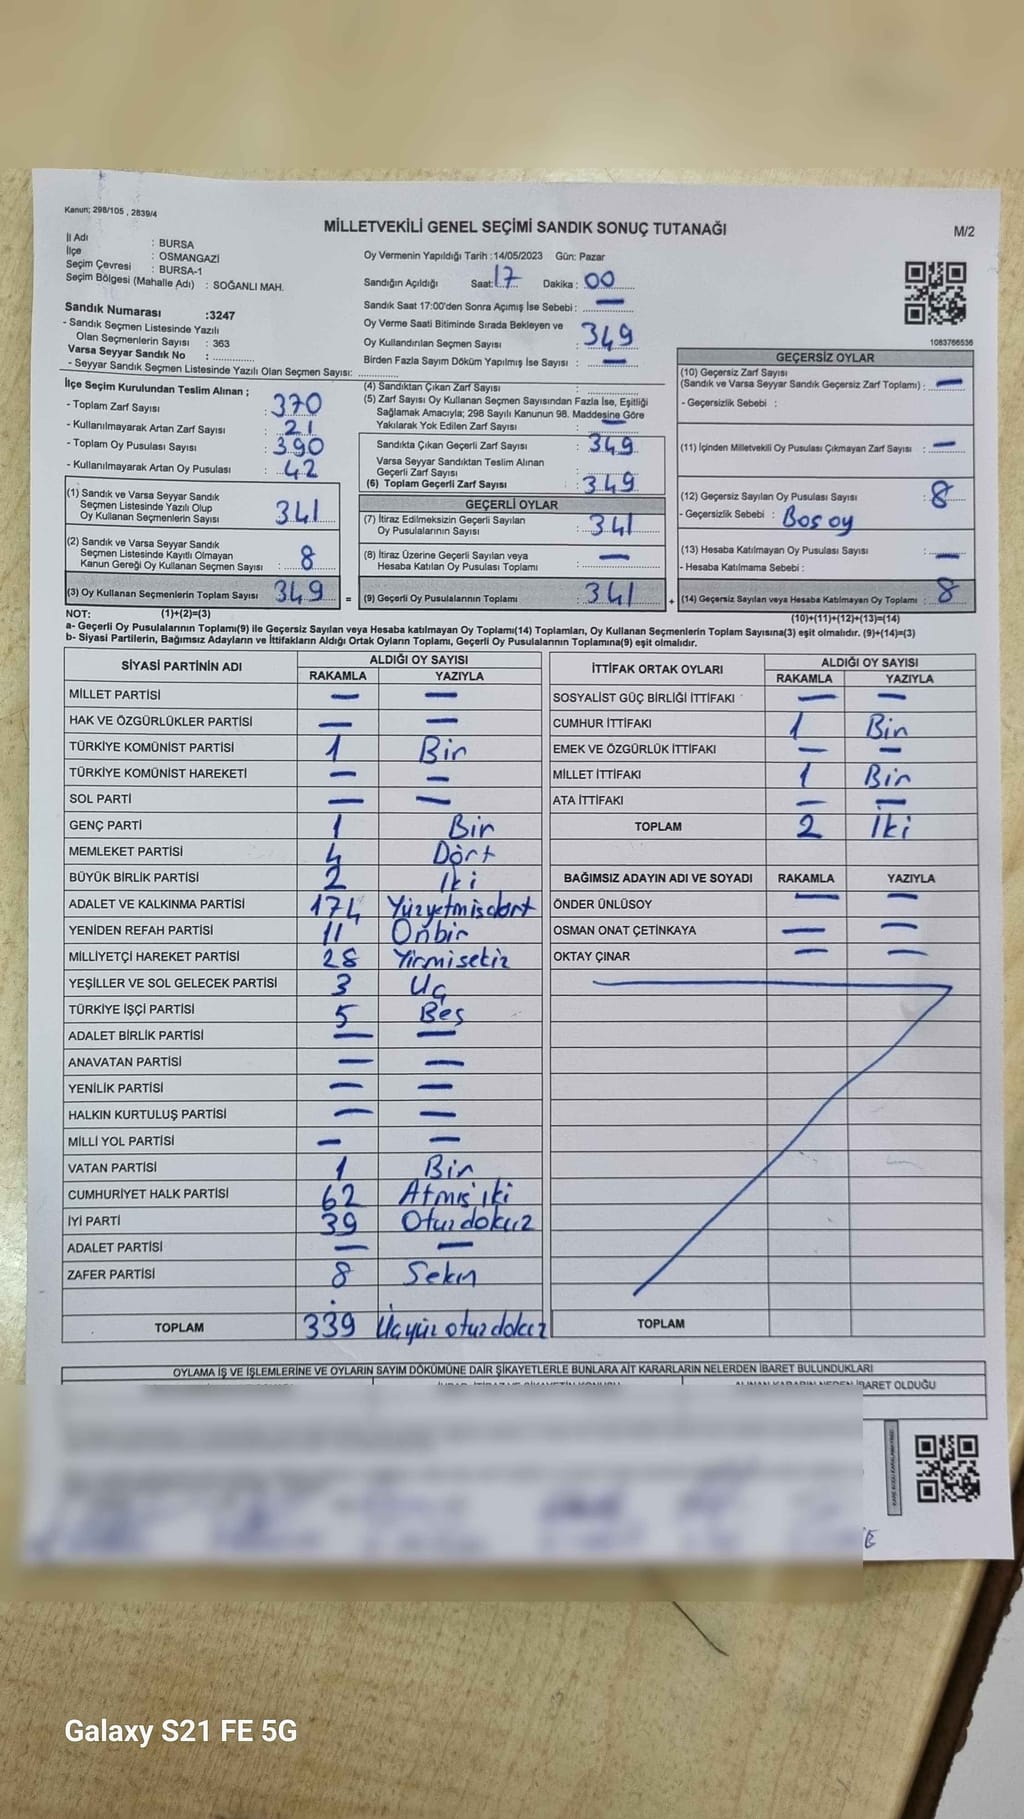 Kanun; 298/105 , 2839/4
MİLLETVEKİLİ GENEL SEÇİMİ SANDIK SONUÇ TUTANAĞI
M/2
İl Adı : BURSA
İlçe : OSMANGAZİ
Seçim Çevresi : BURSA-1
Seçim Bölgesi (Mahalle Adı) : SOĞANLI MAH.
Oy Vermenin Yapıldığı Tarih :14/05/2023 Gün: Pazar
Sandığın Açıldığı Saat: 17 Dakika : 00
Sandık Saat 17:00'den Sonra Açımış İse Sebebi : —
Oy Verme Saati Bitiminde Sırada Bekleyen ve
Oy Kullandırılan Seçmen Sayısı : 349
Birden Fazla Sayım Döküm Yapılmış İse Sayısı : —
1083766536
Sandık Numarası :3247
- Sandık Seçmen Listesinde Yazılı
Olan Seçmenlerin Sayısı : 363
Varsa Seyyar Sandık No :
- Seyyar Sandık Seçmen Listesinde Yazılı Olan Seçmen Sayısı:
İlçe Seçim Kurulundan Teslim Alınan ;
- Toplam Zarf Sayısı : 370
- Kullanılmayarak Artan Zarf Sayısı : 21
- Toplam Oy Pusulası Sayısı : 390
- Kullanılmayarak Artan Oy Pusulası : 42
(1) Sandık ve Varsa Seyyar Sandık
Seçmen Listesinde Yazılı Olup
Oy Kullanan Seçmenlerin Sayısı : 341
(2) Sandık ve Varsa Seyyar Sandık
Seçmen Listesinde Kayıtlı Olmayan
Kanun Gereği Oy Kullanan Seçmen Sayısı : 8
(3) Oy Kullanan Seçmenlerin Toplam Sayısı : 349 =
(4) Sandıktan Çıkan Zarf Sayısı :
(5) Zarf Sayısı Oy Kullanan Seçmen Sayısından Fazla İse, Eşitliği
Sağlamak Amacıyla; 298 Sayılı Kanunun 98. Maddesine Göre
Yakılarak Yok Edilen Zarf Sayısı : —
Sandıkta Çıkan Geçerli Zarf Sayısı : 349
Varsa Seyyar Sandıktan Teslim Alınan
Geçerli Zarf Sayısı
(6) Toplam Geçerli Zarf Sayısı : 349
GEÇERLİ OYLAR
(7) İtiraz Edilmeksizin Geçerli Sayılan
Oy Pusulalarının Sayısı : 341
(8) İtiraz Üzerine Geçerli Sayılan veya
Hesaba Katılan Oy Pusulası Toplamı : —
(9) Geçerli Oy Pusulalarının Toplamı : 341 +
GEÇERSİZ OYLAR
(10) Geçersiz Zarf Sayısı
(Sandık ve Varsa Seyyar Sandık Geçersiz Zarf Toplamı) : —
- Geçersizlik Sebebi :
(11) İçinden Milletvekili Oy Pusulası Çıkmayan Zarf Sayısı : —
(12) Geçersiz Sayılan Oy Pusulası Sayısı : 8
- Geçersizlik Sebebi : Boş oy
(13) Hesaba Katılmayan Oy Pusulası Sayısı : —
- Hesaba Katılmama Sebebi :
(14) Geçersiz Sayılan veya Hesaba Katılmayan Oy Toplamı : 8
NOT: (1)+(2)=(3)
(10)+(11)+(12)+(13)=(14)
a- Geçerli Oy Pusulalarının Toplamı(9) ile Geçersiz Sayılan veya Hesaba katılmayan Oy Toplamı(14) Toplamları, Oy Kullanan Seçmenlerin Toplam Sayısına(3) eşit olmalıdır. (9)+(14)=(3)
b- Siyasi Partilerin, Bağımsız Adayların ve İttifakların Aldığı Ortak Oyların Toplamı, Geçerli Oy Pusulalarının Toplamına(9) eşit olmalıdır.
SİYASİ PARTİNİN ADI ALDIĞI OY SAYISI
RAKAMLA YAZIYLA
MİLLET PARTİSİ — —
HAK VE ÖZGÜRLÜKLER PARTİSİ — —
TÜRKİYE KOMÜNİST PARTİSİ 1 Bir
TÜRKİYE KOMÜNİST HAREKETİ — —
SOL PARTİ — —
GENÇ PARTİ 1 Bir
MEMLEKET PARTİSİ 4 Dört
BÜYÜK BİRLİK PARTİSİ 2 İki
ADALET VE KALKINMA PARTİSİ 174 Yüzyetmişdört
YENİDEN REFAH PARTİSİ 11 Onbir
MİLLİYETÇİ HAREKET PARTİSİ 28 Yirmisekiz
YEŞİLLER VE SOL GELECEK PARTİSİ 3 Üç
TÜRKİYE İŞÇİ PARTİSİ 5 Beş
ADALET BİRLİK PARTİSİ — —
ANAVATAN PARTİSİ — —
YENİLİK PARTİSİ — —
HALKIN KURTULUŞ PARTİSİ — —
MİLLİ YOL PARTİSİ — —
VATAN PARTİSİ 1 Bir
CUMHURİYET HALK PARTİSİ 62 Atmış iki
İYİ PARTİ 39 Otuzdokuz
ADALET PARTİSİ — —
ZAFER PARTİSİ 8 Sekiz
TOPLAM 339 Üçyüz otuzdokuz
İTTİFAK ORTAK OYLARI ALDIĞI OY SAYISI
RAKAMLA YAZIYLA
SOSYALİST GÜÇ BİRLİĞİ İTTİFAKI — —
CUMHUR İTTİFAKI 1 Bir
EMEK VE ÖZGÜRLÜK İTTİFAKI — —
MİLLET İTTİFAKI 1 Bir
ATA İTTİFAKI — —
TOPLAM 2 İki
BAĞIMSIZ ADAYIN ADI VE SOYADI RAKAMLA YAZIYLA
ÖNDER ÜNLÜSOY — —
OSMAN ONAT ÇETİNKAYA — —
OKTAY ÇINAR — —
TOPLAM
OYLAMA İŞ VE İŞLEMLERİNE VE OYLARIN SAYIM DÖKÜMÜNE DAİR ŞİKAYETLERLE BUNLARA AİT KARARLARIN NELERDEN İBARET BULUNDUKLARI
ALINAN KARARIN NEDEN İBARET OLDUĞU
Galaxy S21 FE 5G